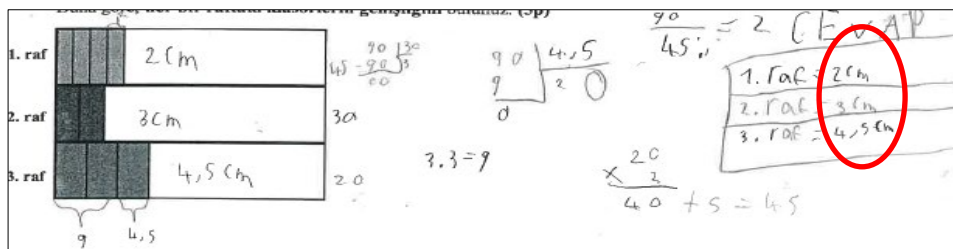 her bir raftaki klasörlerin genişliğini bulunuz. (3p)
1. raf 2 cm 45
2. raf 3 cm 30
3. raf 4,5 cm 20
9 4,5
90 30
90 3
00
90 4,5
9 20
0
3.3=9
90/45 = 2 CEVAP
1. raf = 2cm
2. raf = 3cm
3. raf = 4,5 cm
20
x 2
40 + 5 = 45